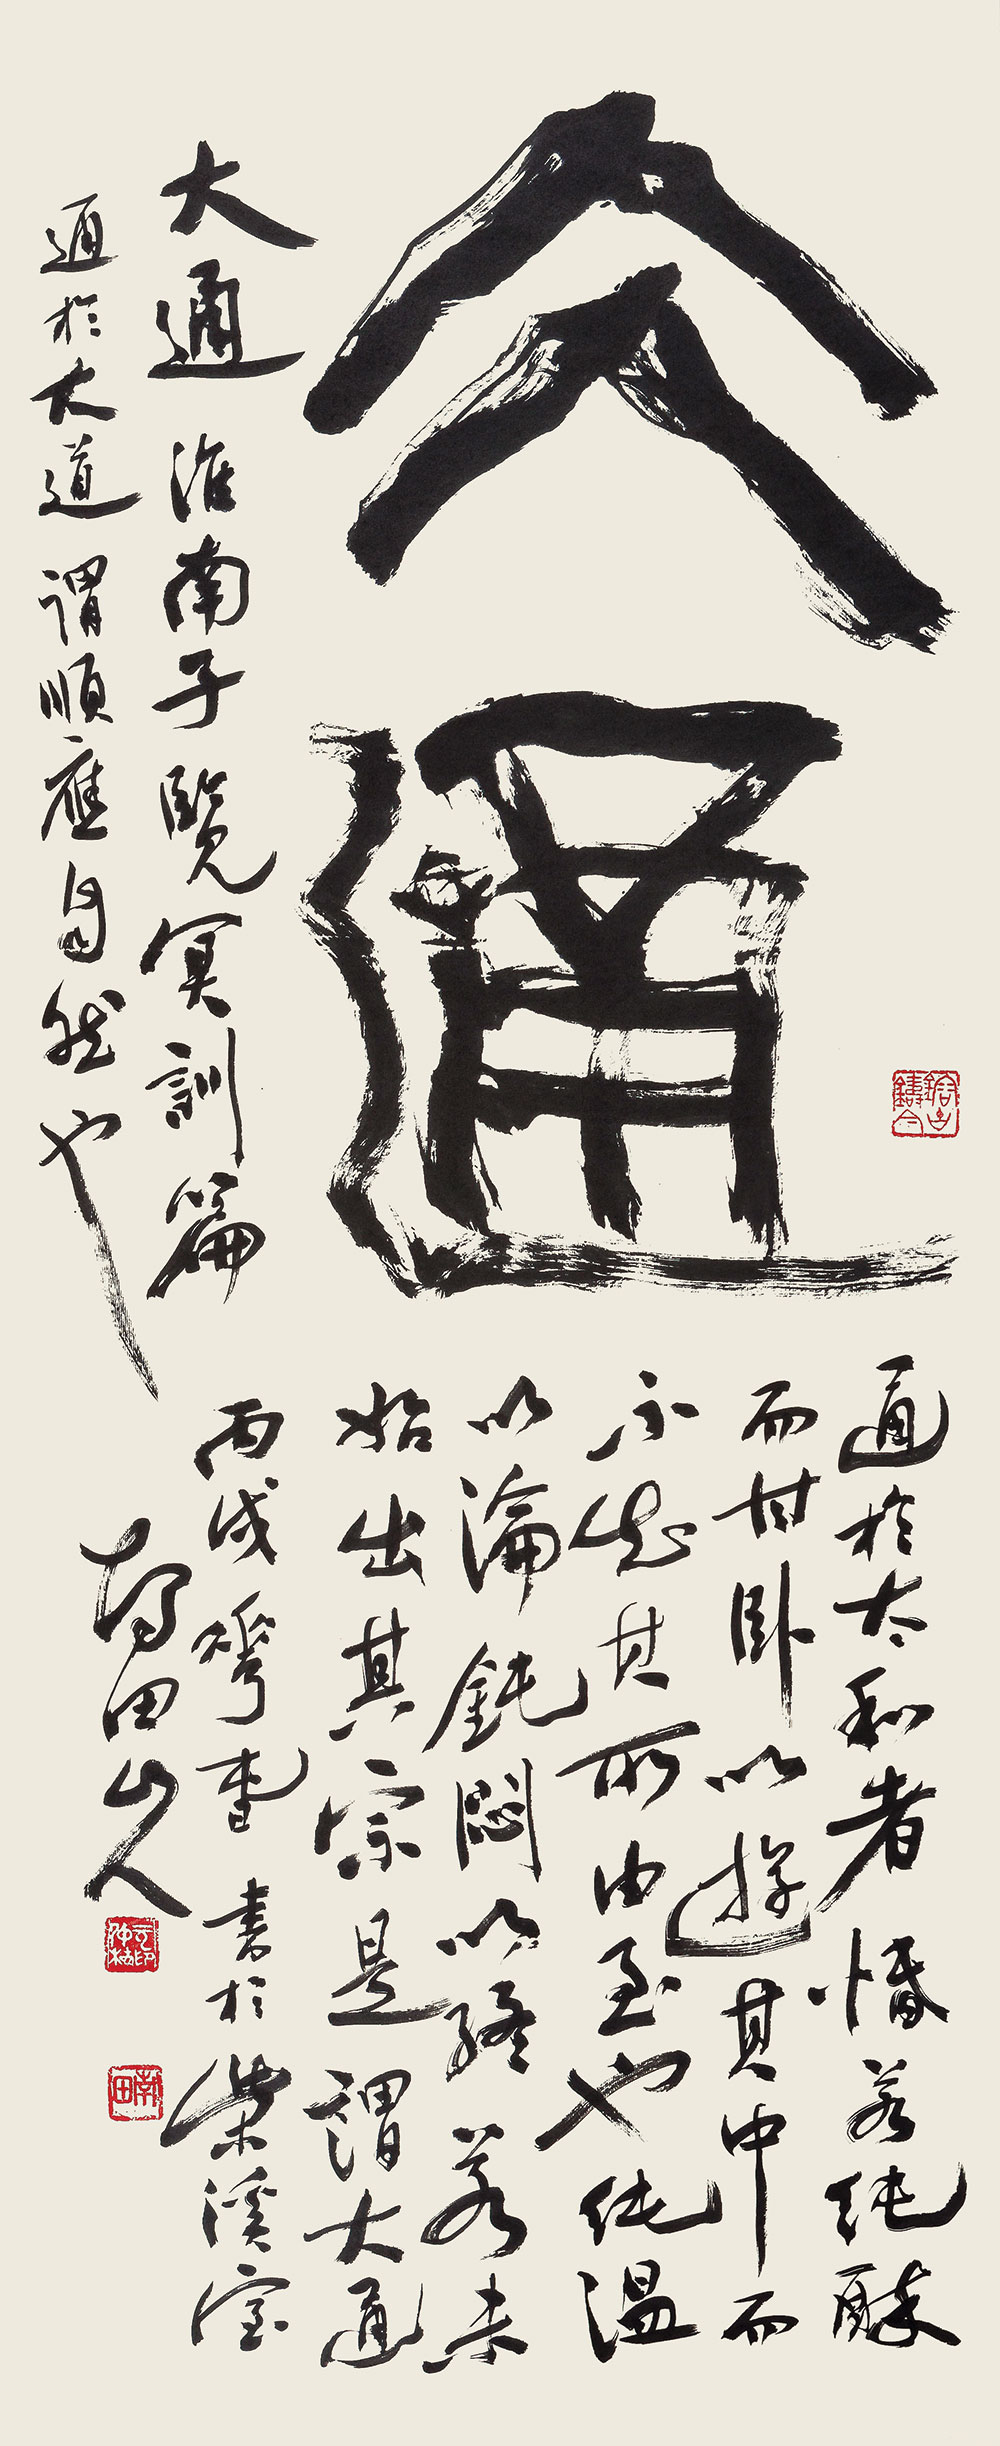 大通
大通 淮南子覽冥訓篇
通於大道謂順應自然也
通於太和者惛若純醉
而甘卧以遊其中而
不知其所由至也純溫
以淪鈍悶以終若未
始出其宗是謂大通
丙戌 書於柴溪室
田山人
鎔古鑄今
南田